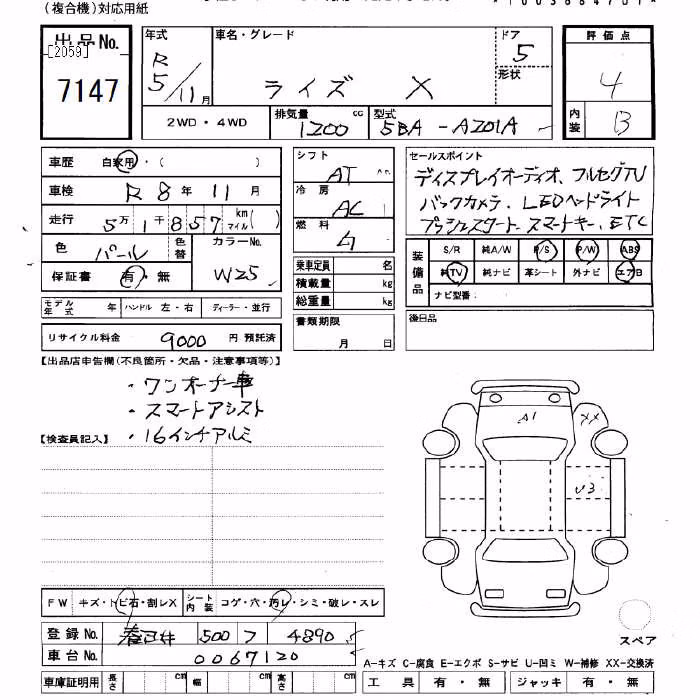 (複合機)対応用紙
出品No.
[2059]
7147
年式
R
5/11月
車名・グレード
ライズ X
ドア
5
形状
評価点
4
内装
B
2WD・4WD
排気量
1200 cc
型式
5BA - A201A
車歴 自家用・( )
車検 R 8年 11月
走行 5万1千857 km マイル( )
色 パール 色替
カラーNo.
W25
保証書 有・無
シフト
AT
冷房
AC
燃料
ガ
乗車定員 名
積載量 kg
総重量 kg
セールスポイント
ディスプレイオーディオ、フルセグTV
バックカメラ、LEDヘッドライト
プッシュスタート、スマートキー、ETC
装備品
S/R 純A/W P/S P/W ABS
純TV 純ナビ 革シート 外ナビ エアB
ナビ型番:
モデル年式 年 ハンドル 左・右 ディーラー・並行
リサイクル料金 9000 円 預託済
書類期限
月 日
後日品
【出品店申告欄(不良箇所・欠品・注意事項等)】
・ワンオーナー車
・スマートアシスト
・16インチアルミ
【検査員記入】
A1
XX
U3
FW キズ・トビ石・割レX シート内装 コゲ・穴・汚レ・シミ・破レ・スレ
登録No. 春日井 500 フ 4890
車台No. 0067120
スペア
A-キズ C-腐食 E-エクボ S-サビ U-凹ミ W-補修 XX-交換済
車庫証明用 長さ cm 幅 cm 高さ cm
工具 有・無 ジャッキ 有・無